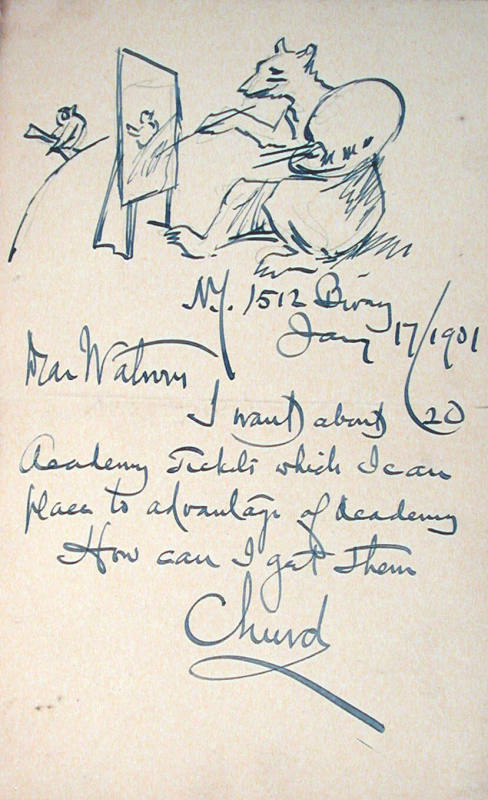 N.Y. 1512 Bway
Jany 17/1901
Dear Watson
I want about 20
Academy Tickets which I can
place to advantage of Academy
How can I get them
Church